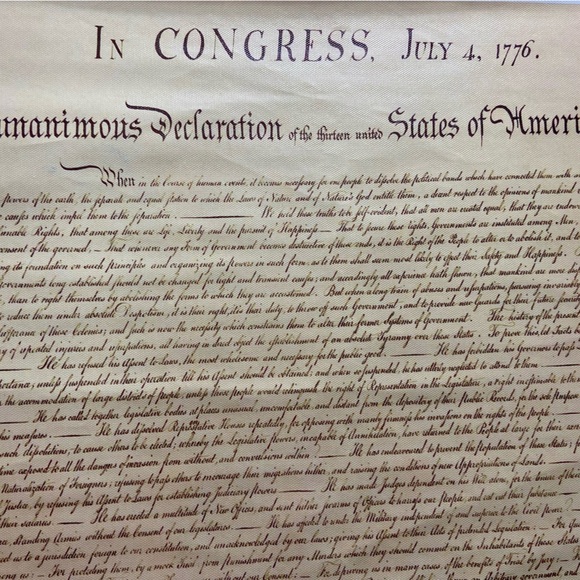 In CONGRESS, July 4, 1776.
unanimous Declaration of the thirteen united States of Ameri
When in the Course of human events, it becomes necessary for one people to dissolve the political bands which have connected them with
powers of the earth, the separate and equal station to which the Laws of Nature and of Nature's God entitle them, a decent respect to the opinions of mankind
causes which impel them to the separation. — We hold these truths to be self-evident, that all men are created equal, that they are endowed
Rights, that among these are Life, Liberty and the pursuit of Happiness — That to secure these rights, Governments are instituted among Men,
consent of the governed, — That whenever any Form of Government becomes destructive of these ends, it is the Right of the People to alter or to abolish it, and to
its foundation on such principles and organizing its powers in such form, as to them shall seem most likely to effect their Safety and Happiness.
Governments long established should not be changed for light and transient causes; and accordingly all experience hath shewn, that mankind are more
than to right themselves by abolishing the forms to which they are accustomed. But when a long train of abuses and usurpations, pursuing invariably
reduce them under absolute Despotism, it is their right, it is their duty, to throw off such Government, and to provide new Guards for their future
sufferance of these Colonies; and such is now the necessity which constrains them to alter their former Systems of Government. The history of the present
of repeated injuries and usurpations, all having in direct object the establishment of an absolute Tyranny over these States. To prove this, let Facts
— He has refused his Assent to Laws, the most wholesome and necessary for the public good. — He has forbidden his Governors to pass
unless suspended in their operation till his Assent should be obtained; and when so suspended, he has utterly neglected to attend to them. —
the accommodation of large districts of people, unless those people would relinquish the right of Representation in the Legislature, a right inestimable to
— He has called together legislative bodies at places unusual, uncomfortable, and distant from the depository of their Public Records, for the sole purpose
his measures. — He has dissolved Representative Houses repeatedly, for opposing with manly firmness his invasions on the rights of the people. —
such dissolutions, to cause others to be elected; whereby the Legislative powers, incapable of Annihilation, have returned to the People at large for their
exposed to all the dangers of invasion from without, and convulsions within. — He has endeavoured to prevent the population of these States;
Naturalization of Foreigners; refusing to pass others to encourage their migrations hither, and raising the conditions of new Appropriations of Lands. —
Justice, by refusing his Assent to Laws for establishing Judiciary powers. — He has made Judges dependent on his Will alone, for the tenure of
their salaries. — He has erected a multitude of New Offices, and sent hither swarms of Officers to harrass our people, and eat out their substance. —
Standing Armies without the Consent of our legislatures. — He has affected to render the Military independent of and superior to the Civil power.
us to a jurisdiction foreign to our constitution, and unacknowledged by our laws; giving his Assent to their Acts of pretended Legislation: — For
us: — For protecting them, by a mock Trial, from punishment for any Murders which they should commit on the Inhabitants of these States
without our Consent: — For depriving us in many cases, of the benefits of Trial by Jury: —